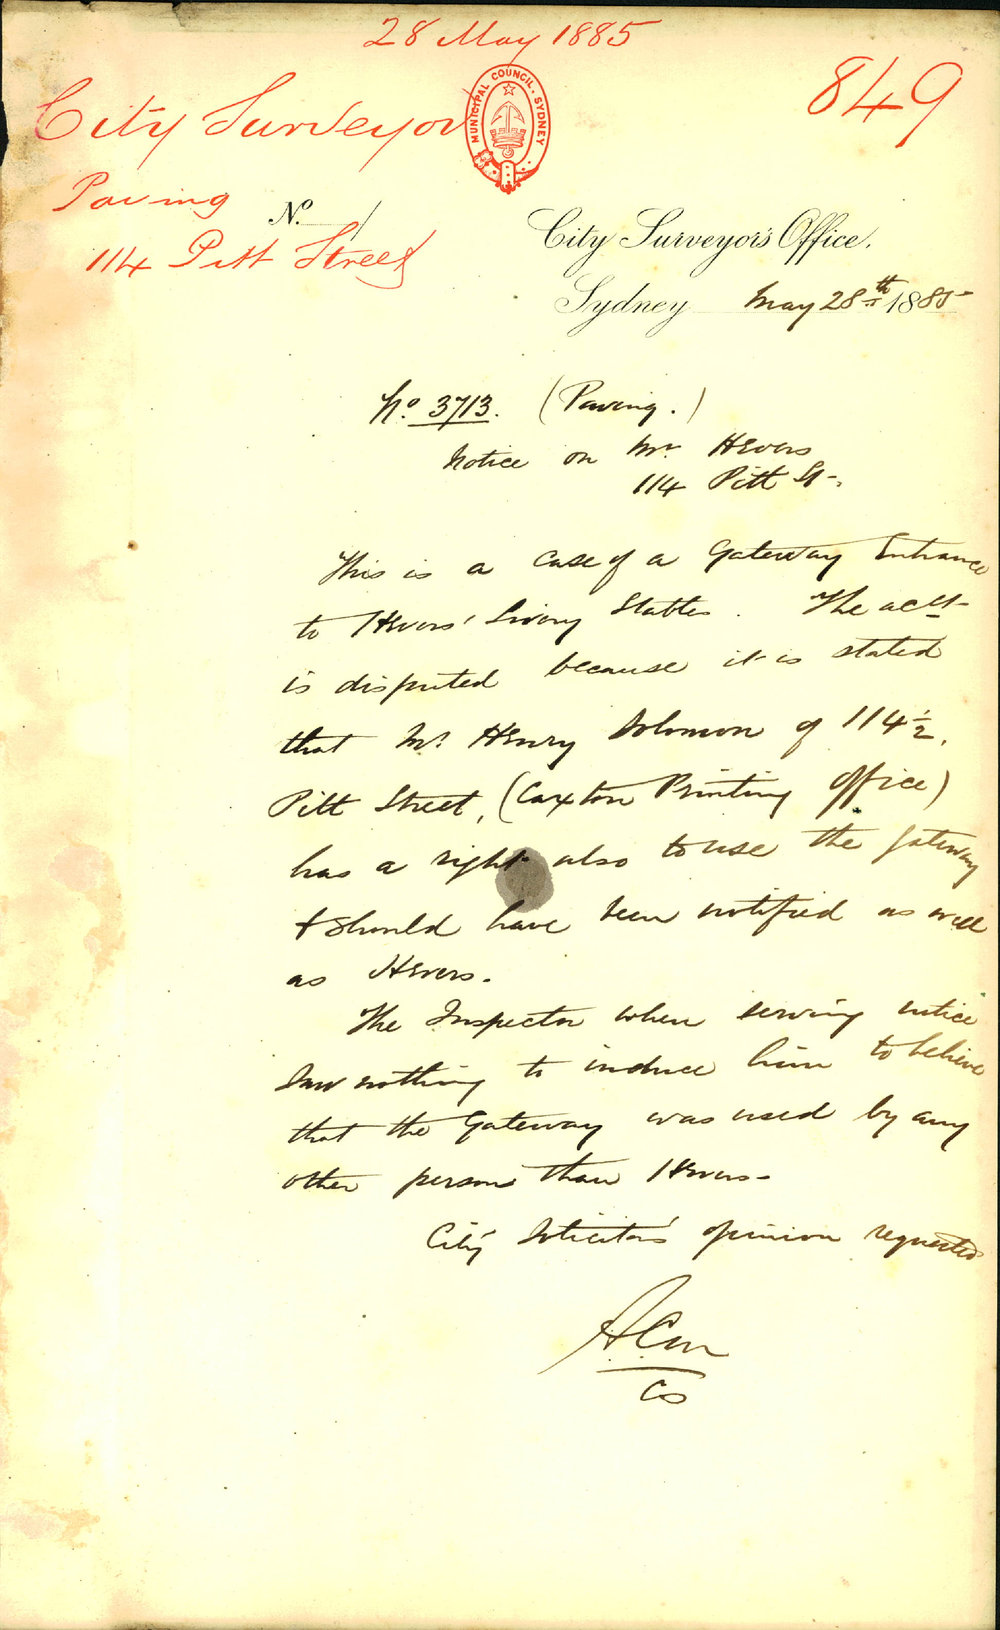 28 May 1885
849
City Surveyor
MUNICIPAL COUNCIL. SYDNEY
Paving
No.
114 Pitt Street
City Surveyor's Office,
Sydney May 28th 1885
No. 3713. (Paving.)
Notice on Mr. Hevers
114 Pitt St.
This is a case of a Gateway Entrance
to Hevers' Livery Stables. The acct
is disputed because it is stated
that Mr. Henry Solomon of 114½
Pitt Street, (Caxton Printing Office)
has a right also to use the gateway
& should have been notified as well
as Hevers.
The Inspector when serving notice
saw nothing to induce him to believe
that the Gateway was used by any
other person than Hevers.
City Solicitor's opinion requested
CS